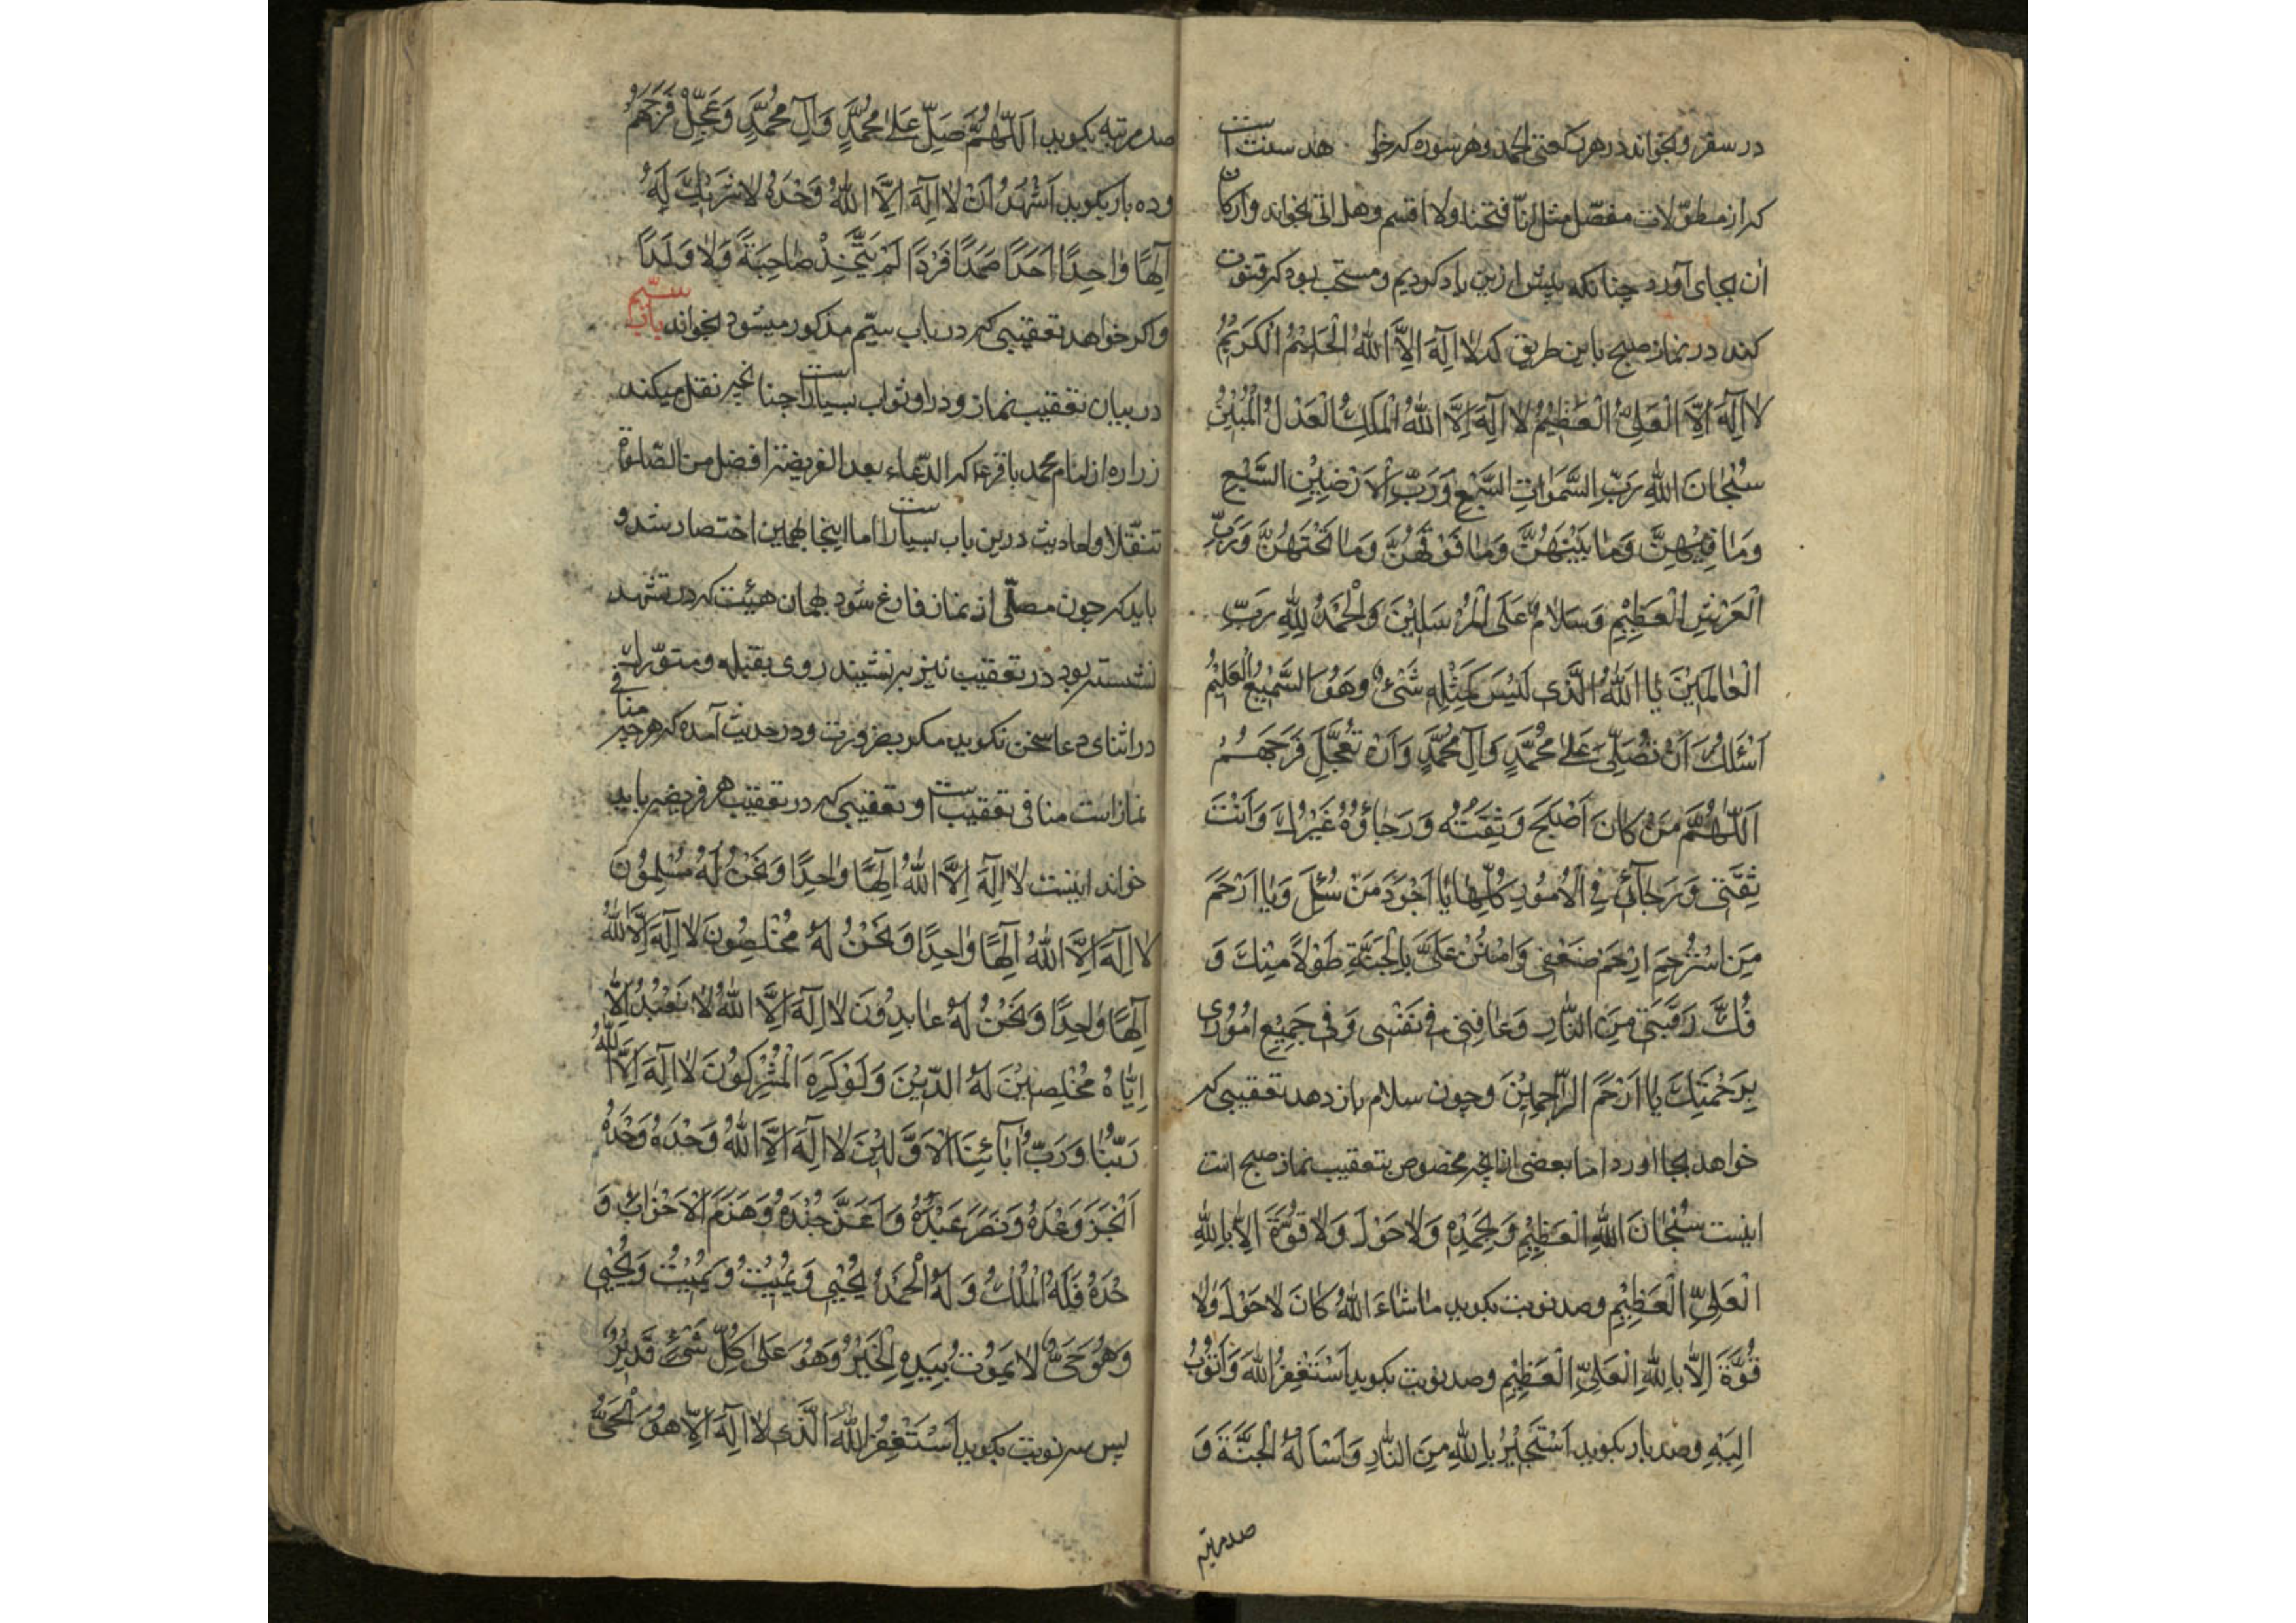 در سفر و بخواند در هر رکعتی الحمد و هر سوره که خواهد سنت است
که از مطوّلات مفصّل مثل انّا فتحنا ولا اقسم و هل اتی بخواند و ارکان
آن بجای آورد چنانکه پیش ازین یاد کردیم و مستحب بود که قنوت
کند در نماز صبح باین طریق که لا اِلٰهَ اِلَّا اللهُ الْحَلِیْمُ الْکَرِیْمُ
لا اِلٰهَ اِلَّا الْعَلِیُّ الْعَظِیْمُ لا اِلٰهَ اِلَّا اللهُ الْمَلِکُ الْعَدْلُ الْمُبِیْنُ
سُبْحَانَ اللهِ رَبِّ السَّمٰوَاتِ السَّبْعِ وَرَبِّ الْاَرَضِیْنِ السَّبْعِ
وَمَا فِیْهِنَّ وَمَا بَیْنَهُنَّ وَمَا فَوْقَهُنَّ وَمَا تَحْتَهُنَّ وَرَبِّ
الْعَرْشِ الْعَظِیْمِ وَسَلَامٌ عَلَی الْمُرْسَلِیْنَ وَالْحَمْدُ لِلّٰهِ رَبِّ
الْعَالَمِیْنَ یَا اَللهُ الَّذِی لَیْسَ کَمِثْلِهِ شَئٌ وَهُوَ السَّمِیْعُ الْعَلِیْمُ
اَسْئَلُکَ اَنْ تُصَلِّیَ عَلٰی مُحَمَّدٍ وَآلِ مُحَمَّدٍ وَاَنْ تُعَجِّلَ فَرَجَهُمْ
اَللّٰهُمَّ مَنْ کَانَ اَصْبَحَ وَثِقَتُهُ وَرَجَاؤُهُ غَیْرُکَ وَاَنْتَ
ثِقَتِی وَرَجَائِی فِی الْاُمُوْرِ کُلِّهَا یَا اَجْوَدَ مَنْ سُئِلَ وَیَا اَرْحَمَ
مَنِ اسْتُرْحِمَ اِرْحَمْ ضَعْفِی وَامْنُنْ عَلَیَّ بِالْجَنَّةِ طَوْلاً مِنْکَ وَ
فُکَّ رَقَبَتِی مِنَ النَّارِ وَعَافِنِی فِی نَفْسِی وَفِی جَمِیْعِ اُمُوْرِی
بِرَحْمَتِکَ یَا اَرْحَمَ الرَّاحِمِیْنَ و چون سلام باز دهد تعقیبی که
خواهد بجا اورد اما بعضی از انچه مخصوص بتعقیب نماز صبح است
اینست سُبْحَانَ اللهِ الْعَظِیْمِ وَبِحَمْدِهِ وَلَا حَوْلَ وَلَا قُوَّةَ اِلَّا بِاللهِ
الْعَلِیِّ الْعَظِیْمِ و صد نوبت بکوید مَا شَاءَ اللهُ کَانَ لَا حَوْلَ وَلَا
قُوَّةَ اِلَّا بِاللهِ الْعَلِیِّ الْعَظِیْمِ و صد نوبت بکوید اَسْتَغْفِرُ اللهَ وَاَتُوْبُ
اِلَیْهِ و صد بار بکوید اَسْتَجِیْرُ بِاللهِ مِنَ النَّارِ وَاَسْاَلُهُ الْجَنَّةَ وَ
صد مرتبه
صد مرتبه بکوید اَللّٰهُمَّ صَلِّ عَلٰی مُحَمَّدٍ وَآلِ مُحَمَّدٍ وَعَجِّلْ فَرَجَهُمْ
و ده بار بکوید اَشْهَدُ اَنْ لَا اِلٰهَ اِلَّا اللهُ وَحْدَهُ لَا شَرِیْکَ لَهُ
اِلٰهًا وَاحِدًا اَحَدًا صَمَدًا فَرْدًا لَمْ یَتَّخِذْ صَاحِبَةً وَلَا وَلَدًا
و اکر خواهد تعقیبی که در باب سیّم مذکور میشود بخواند باب سیّم
در بیان تعقیب نماز و در او ثواب بسیار است چنانچه نقل میکند
زراره از امام محمد باقر ع که الدّعاء بعد الفریضة افضل من الصّلوة
تنفّلا و احادیث درین باب بسیار است اما اینجا بهمین اختصار شد و
باید که چون مصلّی از نماز فارغ شود بهمان هیئت که در تشهد
نشسته بود در تعقیب نیز بنشیند روی بقبله و متورّك
در اثنای دعا سخن نکوید مکر بضرورت و در حدیث آمده که هر چیز منافی
نماز است منافی تعقیب است و تعقیبی که در تعقیب هر فریضه باید
خواند اینست لَا اِلٰهَ اِلَّا اللهُ اِلٰهًا وَاحِدًا وَنَحْنُ لَهُ مُسْلِمُوْنَ
لَا اِلٰهَ اِلَّا اللهُ اِلٰهًا وَاحِدًا وَنَحْنُ لَهُ مُخْلِصُوْنَ لَا اِلٰهَ اِلَّا اللهُ
اِلٰهًا وَاحِدًا وَنَحْنُ لَهُ عَابِدُوْنَ لَا اِلٰهَ اِلَّا اللهُ لَا نَعْبُدُ اِلَّا
اِیَّاهُ مُخْلِصِیْنَ لَهُ الدِّیْنَ وَلَوْ کَرِهَ الْمُشْرِکُوْنَ لَا اِلٰهَ اِلَّا اللهُ
رَبُّنَا وَرَبُّ اٰبَائِنَا الْاَوَّلِیْنَ لَا اِلٰهَ اِلَّا اللهُ وَحْدَهُ وَحْدَهُ
اَنْجَزَ وَعْدَهُ وَنَصَرَ عَبْدَهُ وَاَعَزَّ جُنْدَهُ وَهَزَمَ الْاَحْزَابَ وَ
حْدَهُ فَلَهُ الْمُلْكُ وَلَهُ الْحَمْدُ یُحْیِی وَیُمِیْتُ وَیُمِیْتُ وَیُحْیِی
وَهُوَ حَیٌّ لَا یَمُوْتُ بِیَدِهِ الْخَیْرُ وَهُوَ عَلٰی کُلِّ شَیْءٍ قَدِیْرٌ
پس سه نوبت بکوید اَسْتَغْفِرُ اللهَ الَّذِی لَا اِلٰهَ اِلَّا هُوَ الْحَیُّ